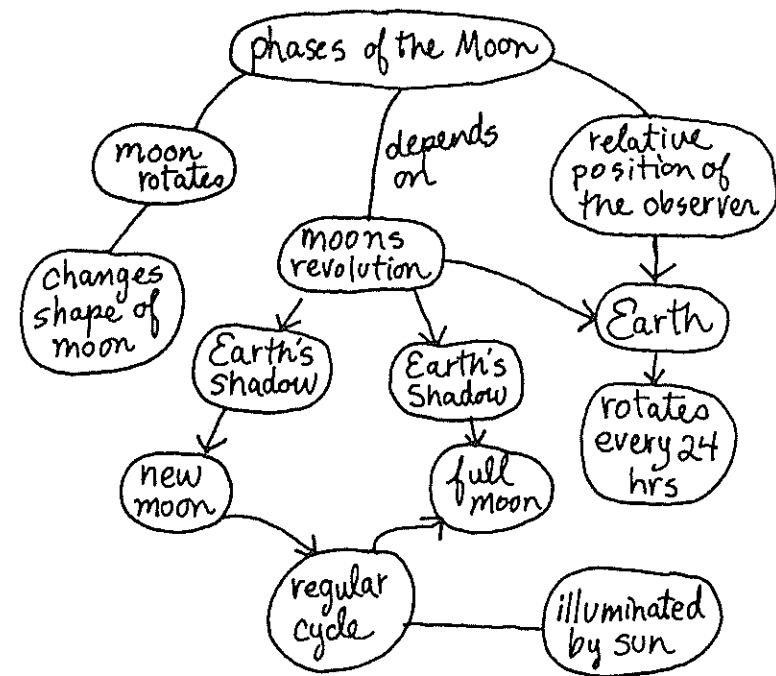 phases of the Moon
moon
rotates
depends
on
relative
position of
the observer
moons
revolution
changes
shape of
moon
Earth
Earth's
shadow
Earth's
Shadow
rotates
every 24
hrs
new
moon
full
moon
regular
cycle
illuminated
by sun